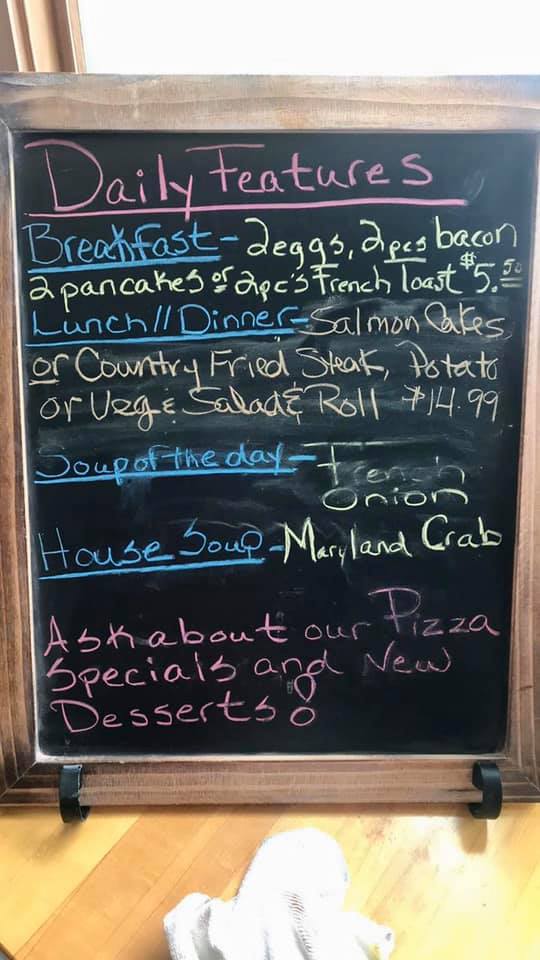 Daily Features
Breakfast - 2 eggs, 2 pcs bacon
2 pancakes or 2 pc's French Toast $5.50
Lunch // Dinner - Salmon Cakes
or Country Fried Steak, Potato
or Veg & Salad & Roll $14.99
Soup of the day - French
Onion
House Soup - Maryland Crab
Ask about our Pizza
Specials and New
Desserts!